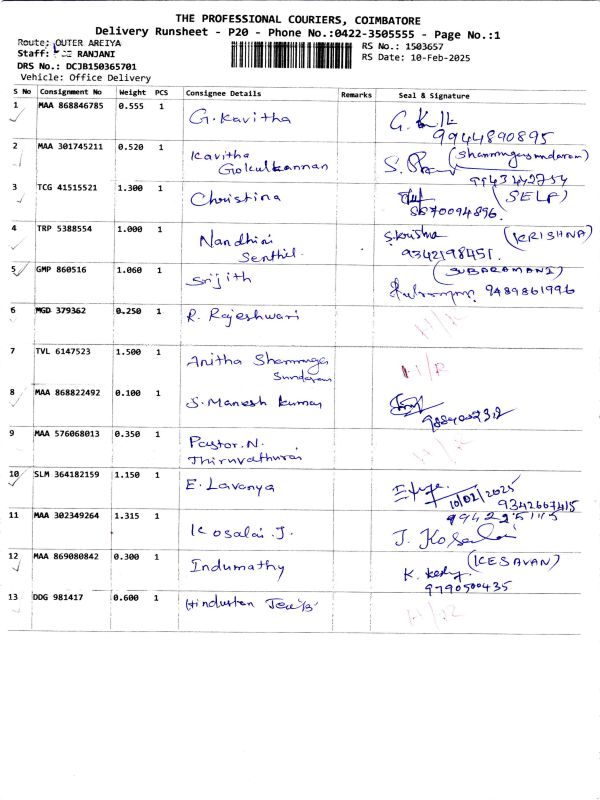 THE PROFESSIONAL COURIERS, COIMBATORE
Delivery Runsheet - P20 - Phone No.:0422-3505555 - Page No.:1
Route: OUTER AREIYA
RS No.: 1503657
Staff: RANJANI
RS Date: 10-Feb-2025
DRS No.: DCJB150365701
Vehicle: Office Delivery
S No Consignment No Weight PCS Consignee Details Remarks Seal & Signature
1 MAA 868846785 0.555 1 G. Kavitha
9944890895
2 MAA 301745211 0.520 1 Kavitha Gokulkannan (Shanmugasundaram)
3 TCG 41515521 1.300 1 Christina (SELF)
8870094896.
4 TRP 5388554 1.000 1 Nandhini Senthil. S.Krishna (KRISHNA)
9342198451.
5 GMP 860516 1.060 1 Srijith (SUBARAMANI)
9489861996
6 MGD 379362 0.250 1 R. Rajeshwari
7 TVL 6147523 1.500 1 Anitha Shanmuga Sundaram
8 MAA 868822492 0.100 1 S. Manesh Kumar
9 MAA 576068013 0.350 1 Pastor.N. Thiruvathurai
10 SLM 364182159 1.150 1 E. Lavanya
10/02/2025
9342667415
11 MAA 302349264 1.315 1 Kosalai.J. J. Kosalai
12 MAA 869080842 0.300 1 Indumathy (KESAVAN)
9790500435
13 DDG 981417 0.600 1 Hindustan